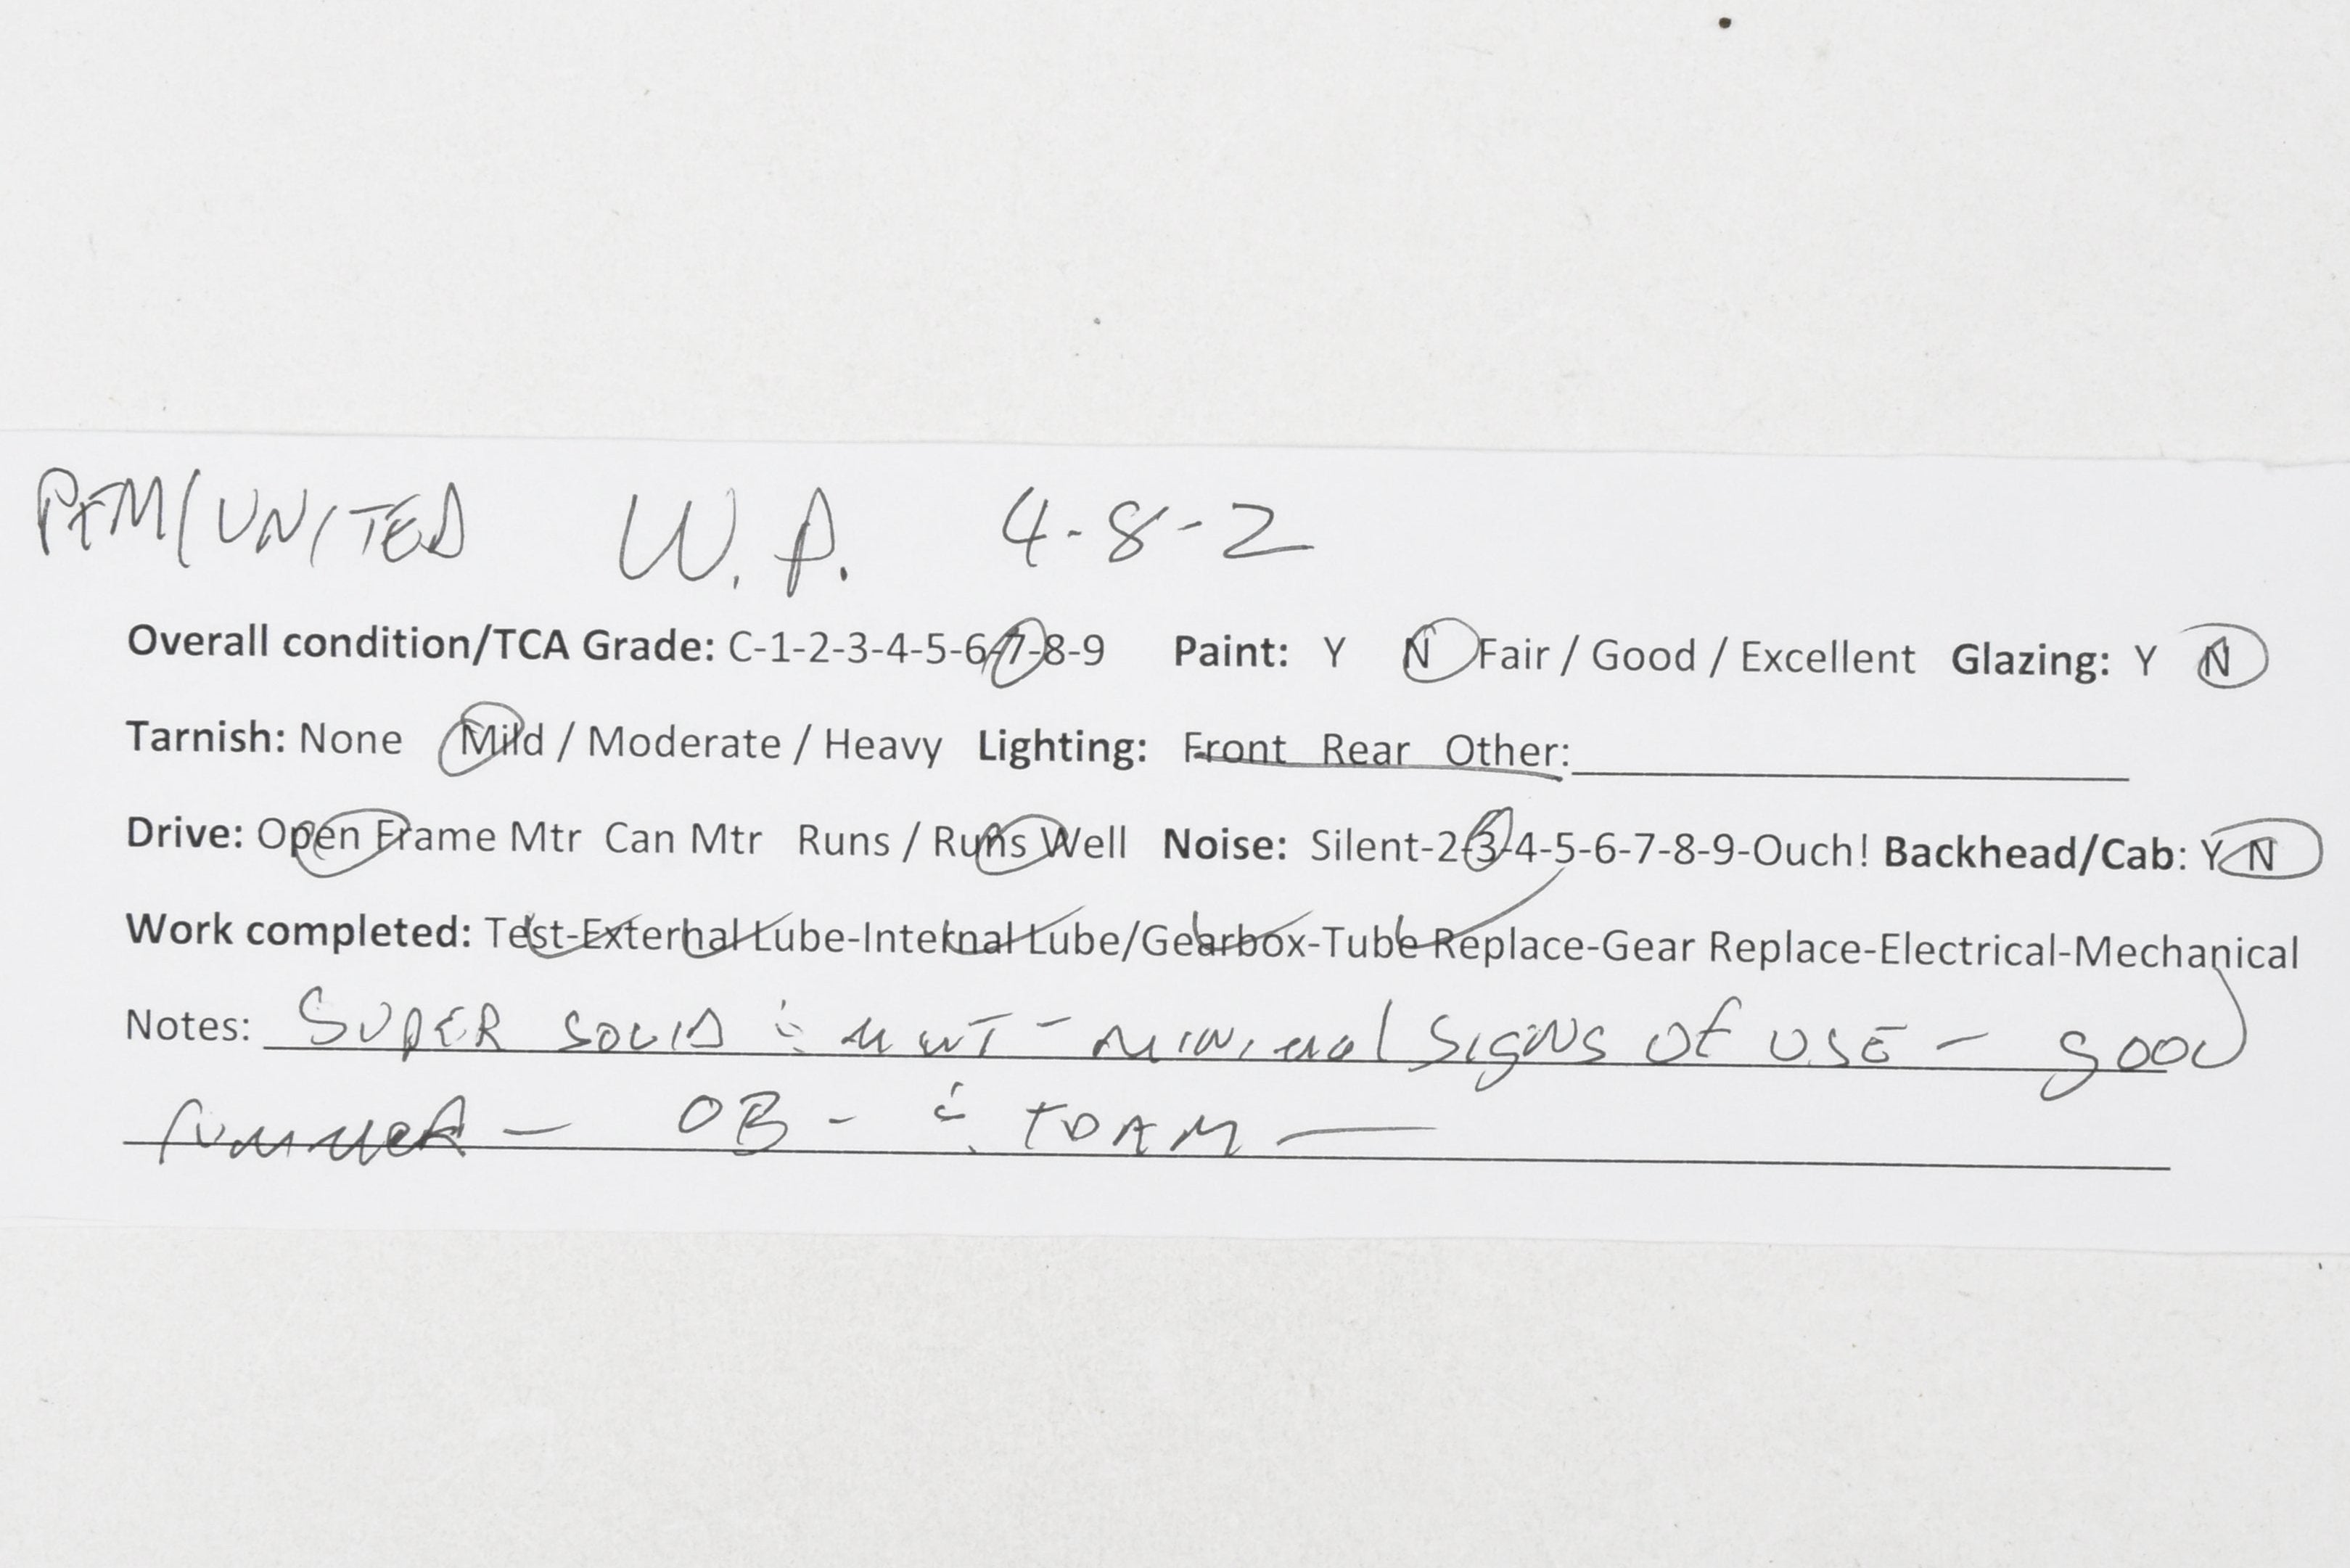 PFM/UNITED W.P. 4-8-2
Overall condition/TCA Grade: C-1-2-3-4-5-6-7-8-9 Paint: Y N Fair / Good / Excellent Glazing: Y N
Tarnish: None Mild / Moderate / Heavy Lighting: Front Rear Other:
Drive: Open Frame Mtr Can Mtr Runs / Runs Well Noise: Silent-2-3-4-5-6-7-8-9-Ouch! Backhead/Cab: Y N
Work completed: Test-External Lube-Internal Lube/Gearbox-Tube Replace-Gear Replace-Electrical-Mechanical
Notes: SUPER SOLID & MINT - MINIMAL SIGNS OF USE - GOOD
RUNNER - OB - & FOAM -